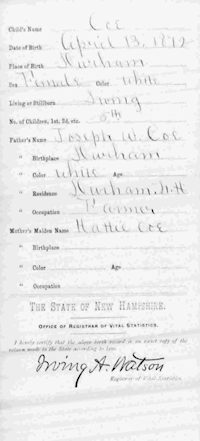 Child's Name Coe
Date of Birth April 13, 1892
Place of Birth Durham
Sex Female Color White
Living or Stillborn Living
No. of Children, 1st, 2d, etc. 5th
Father's Name Joseph W. Coe
" Birthplace Durham
" Color White Age
" Residence Durham, N.H.
" Occupation Farmer
Mother's Maiden Name Hattie Coe
" Birthplace
" Color Age
" Occupation
THE STATE OF NEW HAMPSHIRE.
OFFICE OF REGISTRAR OF VITAL STATISTICS.
I hereby certify that the above birth record is an exact copy of the
return made to the State according to law.
Irving A. Watson
Registrar of Vital Statistics.